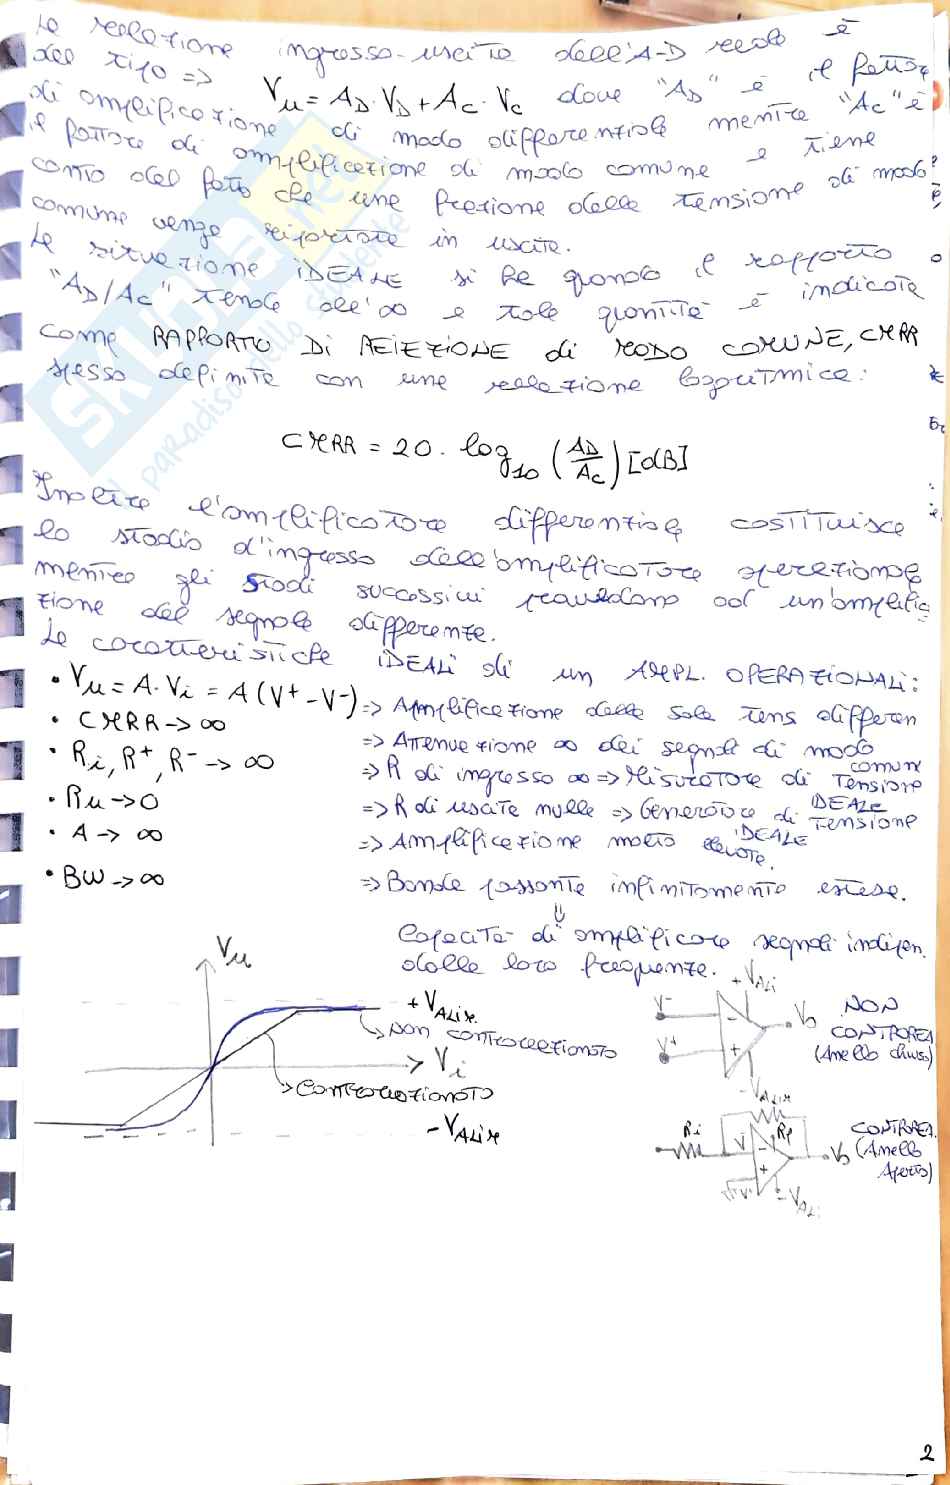 La relazione ingresso-uscita dell'A-D reale è
del tipo => Vu = AD·VD + AC·VC dove "AD" è il fattore
di amplificazione di modo differenziale mentre "AC" è
il fattore di amplificazione di modo comune e tiene
conto del fatto che una frazione della tensione di modo
comune venga riportata in uscita.
La situazione IDEALE si ha quando il rapporto
"AD/AC" tende all'∞ e tale quantità è indicata
come RAPPORTO DI REIEZIONE di MODO COMUNE, CMRR
spesso definita con una relazione logaritmica:
CMRR = 20 · log10 (AD/AC) [dB]
Inoltre l'amplificatore differenziale costituisce
lo stadio d'ingresso dell'amplificatore operazionale
mentre gli stadi successivi provvedono ad un'amplific
zione del segnale differenza.
Le caratteristiche IDEALI di un AMPL. OPERAZIONALI:
• Vu = A·Vi = A(V+ - V-) => Amplificazione della sola tens differen
• CMRR → ∞ => Attenuazione ∞ dei segnali di modo comun
• Ri, R+, R- → ∞ => R di ingresso ∞ => Misuratore di Tensione IDEALE
• Ru → 0 => R di uscita nulla => Generatore di Tensione IDEALE
• A → ∞ => Amplificazione molto elevata.
• BW → ∞ => Banda passante infinitamente estesa.
⇓
Capacità di amplificare segnali indipen.
dalla loro frequenza.
Vu
+VALIM
→ Non controreazionato
Vi
→ Controreazionato
-VALIM
+VALi
V-
V+
-
+
Vo
-VALIM
NON
CONTROREA
(Anello chiuso)
Ri
Rf
V-
-
+
V+
Vo
-VALi
CONTROREA.
(Anello
Aperto)
2
SKUOLA.net
il paradiso dello studente